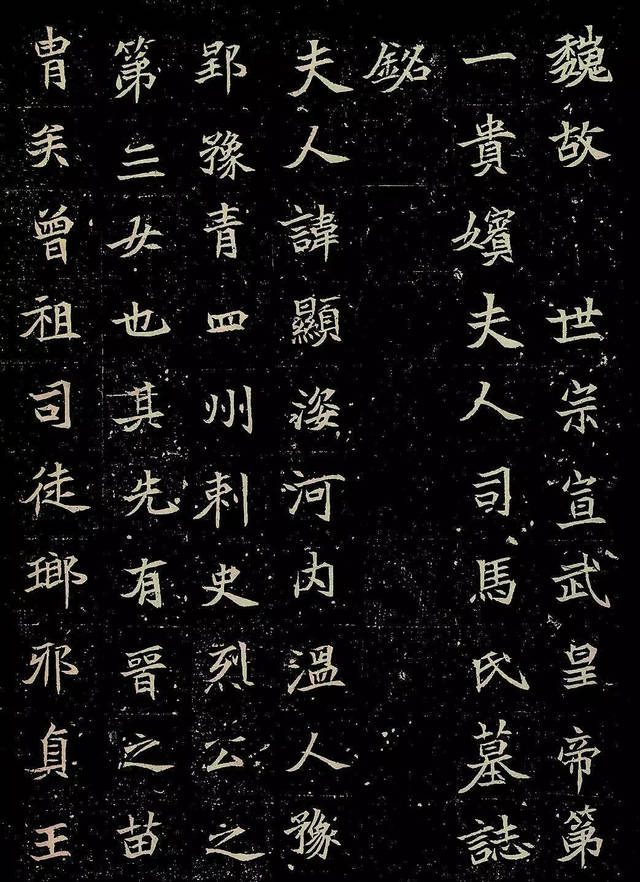 魏故世宗宣武皇帝第
一貴嬪夫人司馬氏墓誌
銘
夫人諱顯姿河內溫人豫
郢豫青四州刺史烈公之
第三女也其先有晉之苗
胄矣曾祖司徒瑯邪貞王